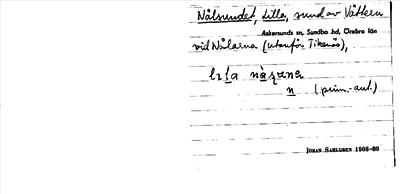 Nålsundet, Lilla, sund av Vättern
Askersunds sn, Sundbo hd, Örebro län
vid Nålarna (utanför Tikanäs),
(prim.-ant.)
JOHAN SAHLGREN 1908-09